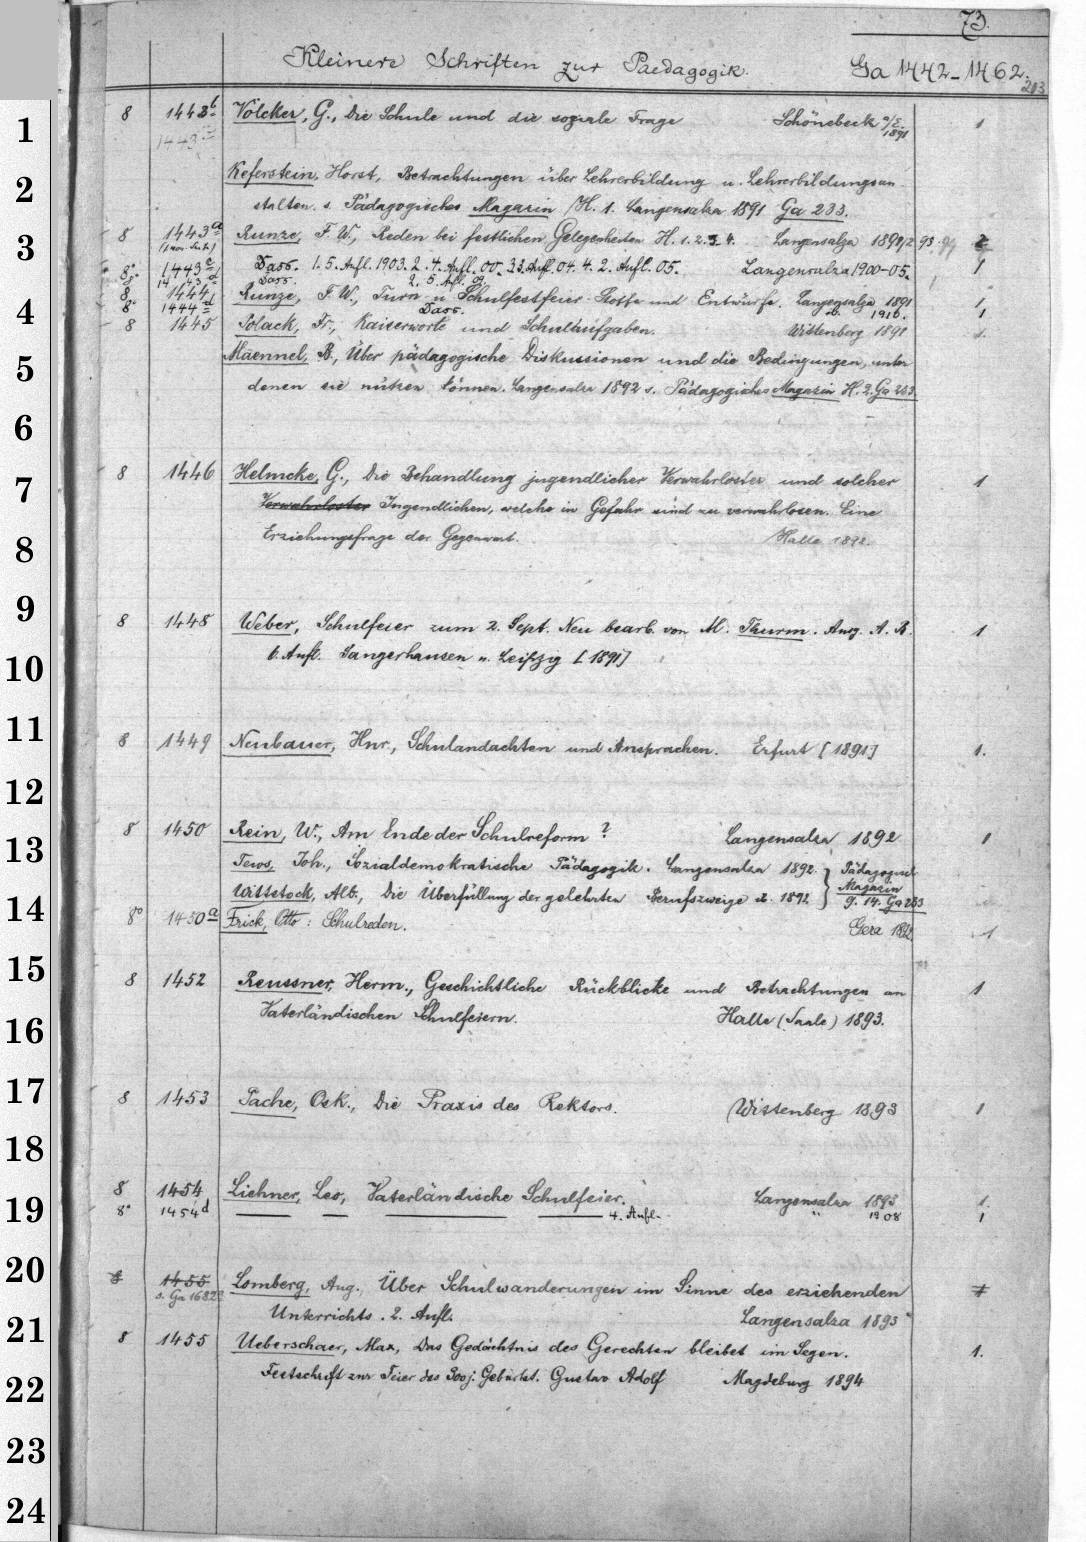 73.
Kleinere Schriften zur Paedagogik. Ga 1442-1462.
213
1
8 1443b Völcker, G., Die Schule und die soziale Frage Schönebeck a/E. 1891 1
2
Keferstein, Horst, Betrachtungen über Lehrerbildung u. Lehrerbildungsan-
stalten. s. Pädagogisches Magazin H. 1. Langensalza 1891 Ga 233.
3
8 1443c Runze, F. W., Reden bei festlichen Gelegenheiten H. 1. 2. 3. 4. Langensalza
8° 1443c Dass. 1. 5. Aufl. 1903. 2. 4. Aufl. 00. 3. 3. Aufl. 04. 4. 2. Aufl. 05. Langensalza 1900-05. 1
Dass. 2. 5. Aufl. 09.
8 1444 Runze, F. W., Turn u. Schulfestfeier. Stoffe und Entwürfe. Langensalza 1891 1
4
8° 1444d Dass. 1916. 1
8 1445 Polack, Fr., Kaiserworte und Schulaufgaben. Wittenberg 1891 1.
5
Maennel, B., Über pädagogische Diskussionen und die Bedingungen, unter
denen sie nützen können. Langensalza 1892 s. Pädagogisches Magazin H. 2. Ga 233.
6
8 1446 Helmcke, G., Die Behandlung jugendlicher Verwahrloster und solcher 1
7
Verwahrloster Jugendlichen, welche in Gefahr sind zu verwahrlosen. Eine
Erziehungsfrage der Gegenwart. Halle 1892.
8
9
8 1448 Weber, Schulfeier zum 2. Sept. Neu bearb. von M. Thurm. Ausg. A. B. 1
6. Aufl. Sangerhausen u. Leipzig [1891]
10
11
8 1449 Neubauer, Hnr., Schulandachten und Ansprachen. Erfurt [1891] 1.
12
8 1450 Rein, W., Am Ende der Schulreform? Langensalza 1892 1
13
Tews, Joh., Sozialdemokratische Pädagogik. Langensalza 1892. } Pädagogisch.
Wittstock, Alb., Die Überfüllung der gelehrten Berufszweige 1892 Magazin
9. 14. Ga 233
14
8° 1450a Frick, Otto: Schulreden. Gera 1892. 1
15
8 1452 Reussner, Herm., Geschichtliche Rückblicke und Betrachtungen an 1
Vaterländischen Schulfeiern. Halle (Saale) 1893.
16
17
8 1453 Pache, Osk., Die Praxis des Rektors. Wittenberg 1893 1
18
8 1454 Liehner, Leo, Vaterländische Schulfeier. Langensalza 1893 1.
19
8° 1454d 4. Aufl. " 1908 1
20
8 1455 Lomberg, Aug., Über Schulwanderungen im Sinne des erziehenden 1
s. Ga 1682
Unterrichts. 2. Aufl. Langensalza 1893
21
8 1455 Ueberschaer, Max, Das Gedächtnis des Gerechten bleibet im Segen. 1.
Festschrift zur Feier des 300j. Geburtst. Gustav Adolf Magdeburg 1894
22
23
24